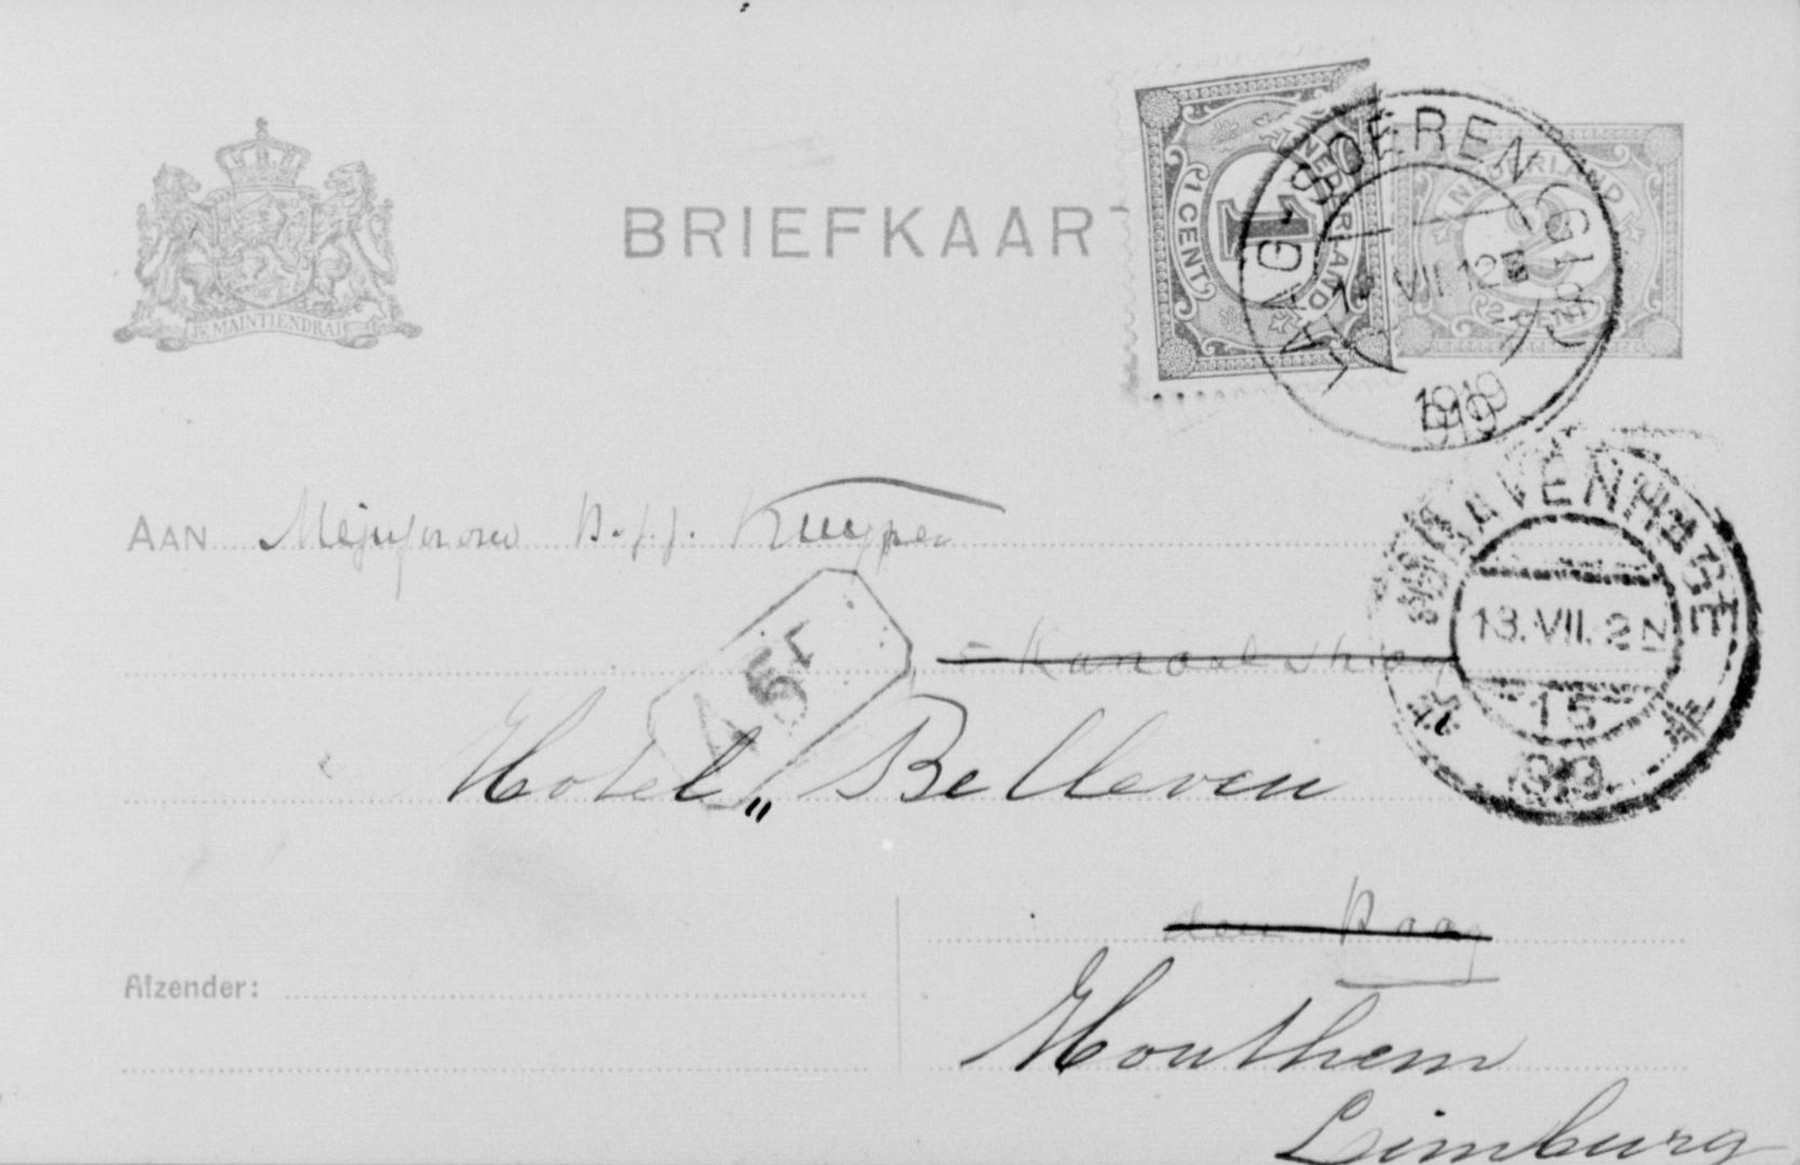 BRIEFKAART
JE MAINTIENDRAI
NEDERLAND
1
1 CENT
NEDERLAND
2
2 CENT
LAAG-SOEREN (GLD)
VII 12
1919
AAN Mejuffrouw H.J.J. Kuyper
'S GRAVENHAGE
13.VII. 2 N
15
Kanaalstraat
Hotel „Bellevue
den Haag
Afzender:
Houthem
Limburg